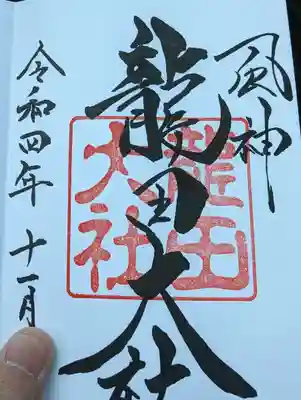 風神
龍田大社
龍田
大社
令和四年十一月